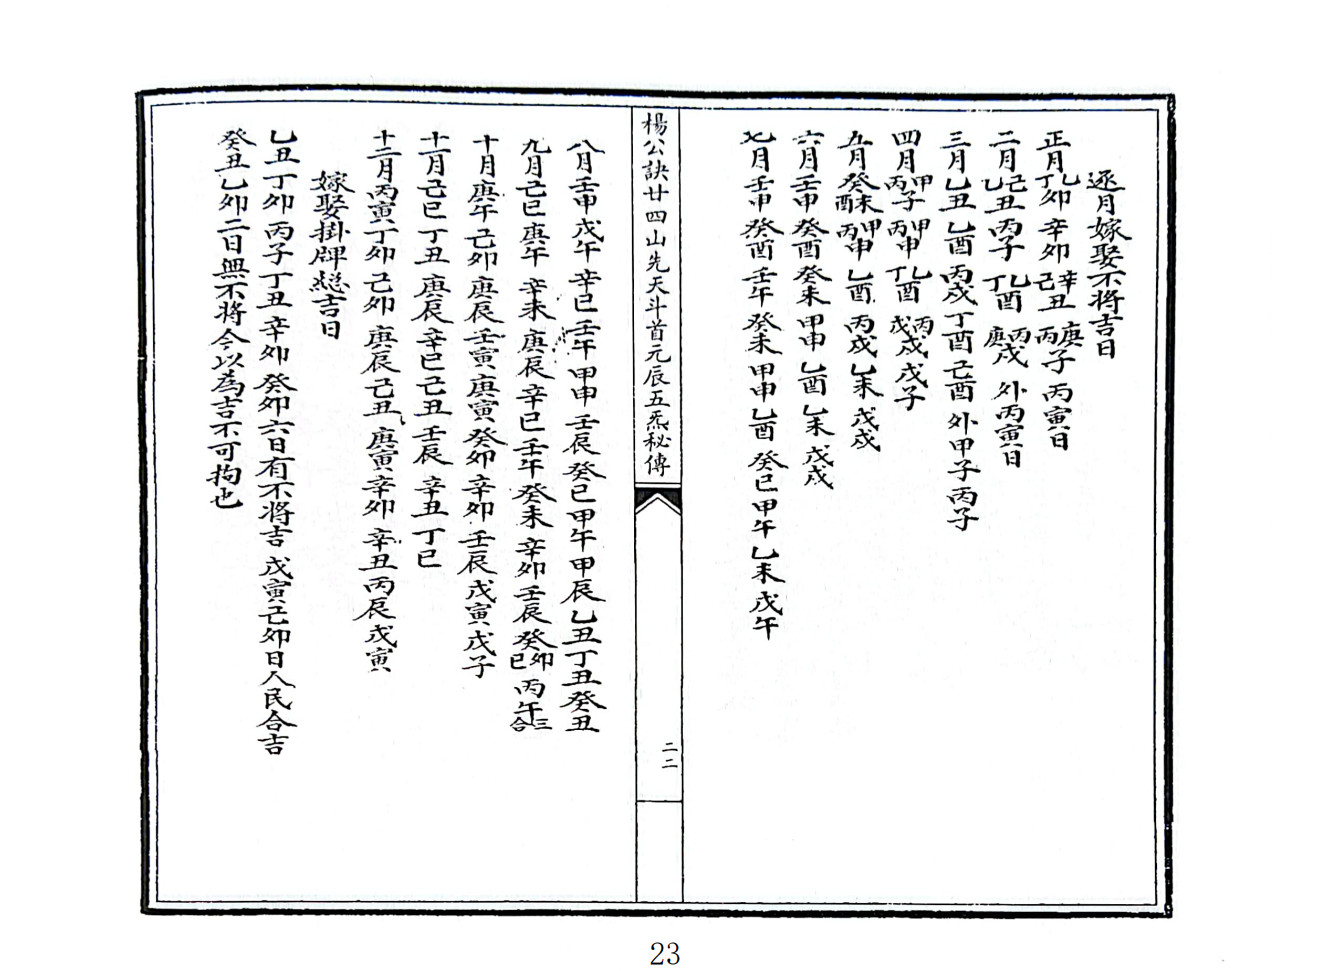 逐月嫁娶不将吉日
正月乙丁卯 辛卯 辛己丑 庚丙子 丙寅日
二月己乙丑 丙子 乙丁酉 丙庚戌 外丙寅日
三月乙丑 乙酉 丙戌 丁酉 己酉 外甲子 丙子
四月甲丙子 甲丙申 乙丁酉 丙戊戌 戊子
五月癸未酉 甲丙申 乙酉 丙戌 乙未 戊戌
六月壬申 癸酉 癸未 甲申 乙酉 乙未 戊戌
七月壬申 癸酉 壬午 癸未 甲申 乙酉 癸巳 甲午 乙未 戊午
楊公訣廿四山先天斗首元辰五炁秘傳
二二
八月壬申 戊午 辛巳 壬午 甲申 壬辰 癸巳 甲午 甲辰 乙丑 丁丑 癸丑
九月己巳 庚午 辛未 庚辰 辛巳 壬午 癸未 辛卯 壬辰 癸卯巳 丙午三合
十月庚午 己卯 庚辰 壬寅 庚寅 癸卯 辛卯 壬辰 戊寅 戊子
十一月己巳 丁丑 庚辰 辛巳 己丑 壬辰 辛丑 丁巳
十二月丙寅 丁卯 己卯 庚辰 己丑 庚寅 辛卯 辛丑 丙辰 戊寅
嫁娶掛牌總吉日
乙丑 丁卯 丙子 丁丑 辛卯 癸卯六日有不将吉 戊寅己卯日人民合吉
癸丑乙卯二日無不将今以為吉不可拘也
23